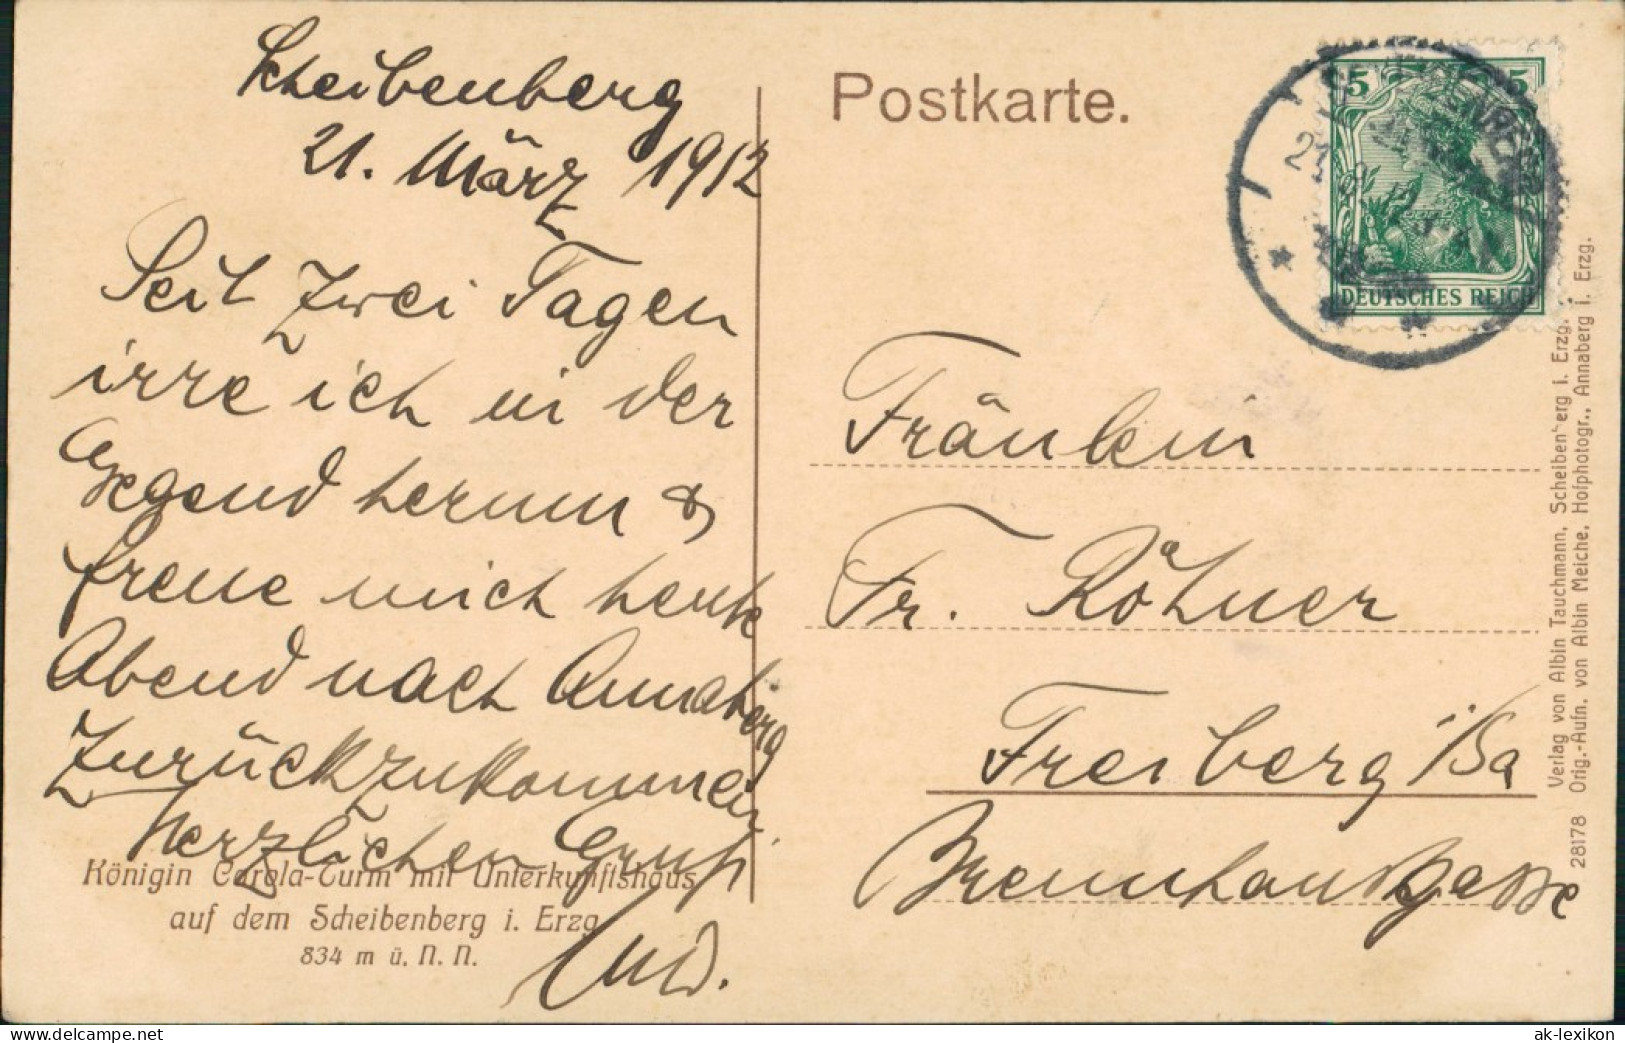 Scheibenberg
21. März 1912
Seit zwei Tagen
irre ich in der
Gegend herum &
freue mich heute
Abend nach Annaberg
zurückzukommen
Herzlichen Gruß
Königin Carola-Turm mit Unterkunftshaus
auf dem Scheibenberg i. Erzg.
834 m ü. N. N.
Postkarte.
5 5
DEUTSCHES REICH
Fräulein
Fr. Röhner
Freiberg i/Sa
Brennhausgasse
Verlag von Albin Tauchmann, Scheibenberg i. Erzg.
28178 Orig.-Aufn. von Albin Meiche, Hofphotogr., Annaberg i. Erzg.
www.delcampe.net
ak-lexikon